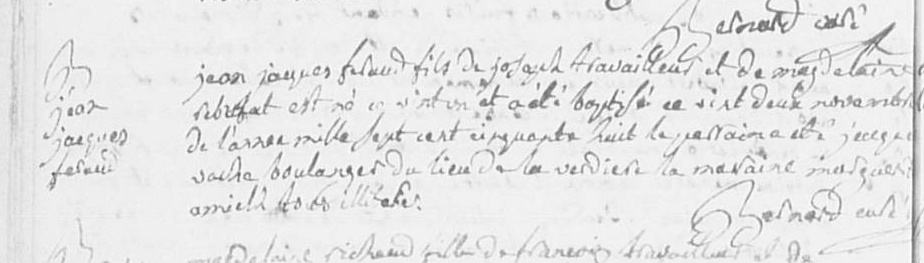 Bernard curé
B
jean jacques feraud fils de joseph travailleur et de magdelaine
jean
rebuffat est né le vint un et a été baptisé ce vint deux novembre
jacques
de l'annee mille sept cent cinquante huit le parrain a été jacques
feraud
boulanger du lieu de la verdiere la maraine marguerite
amielh tous illiteres.
Bernard curé
magdelaine richaud fille de francois travailleur et de